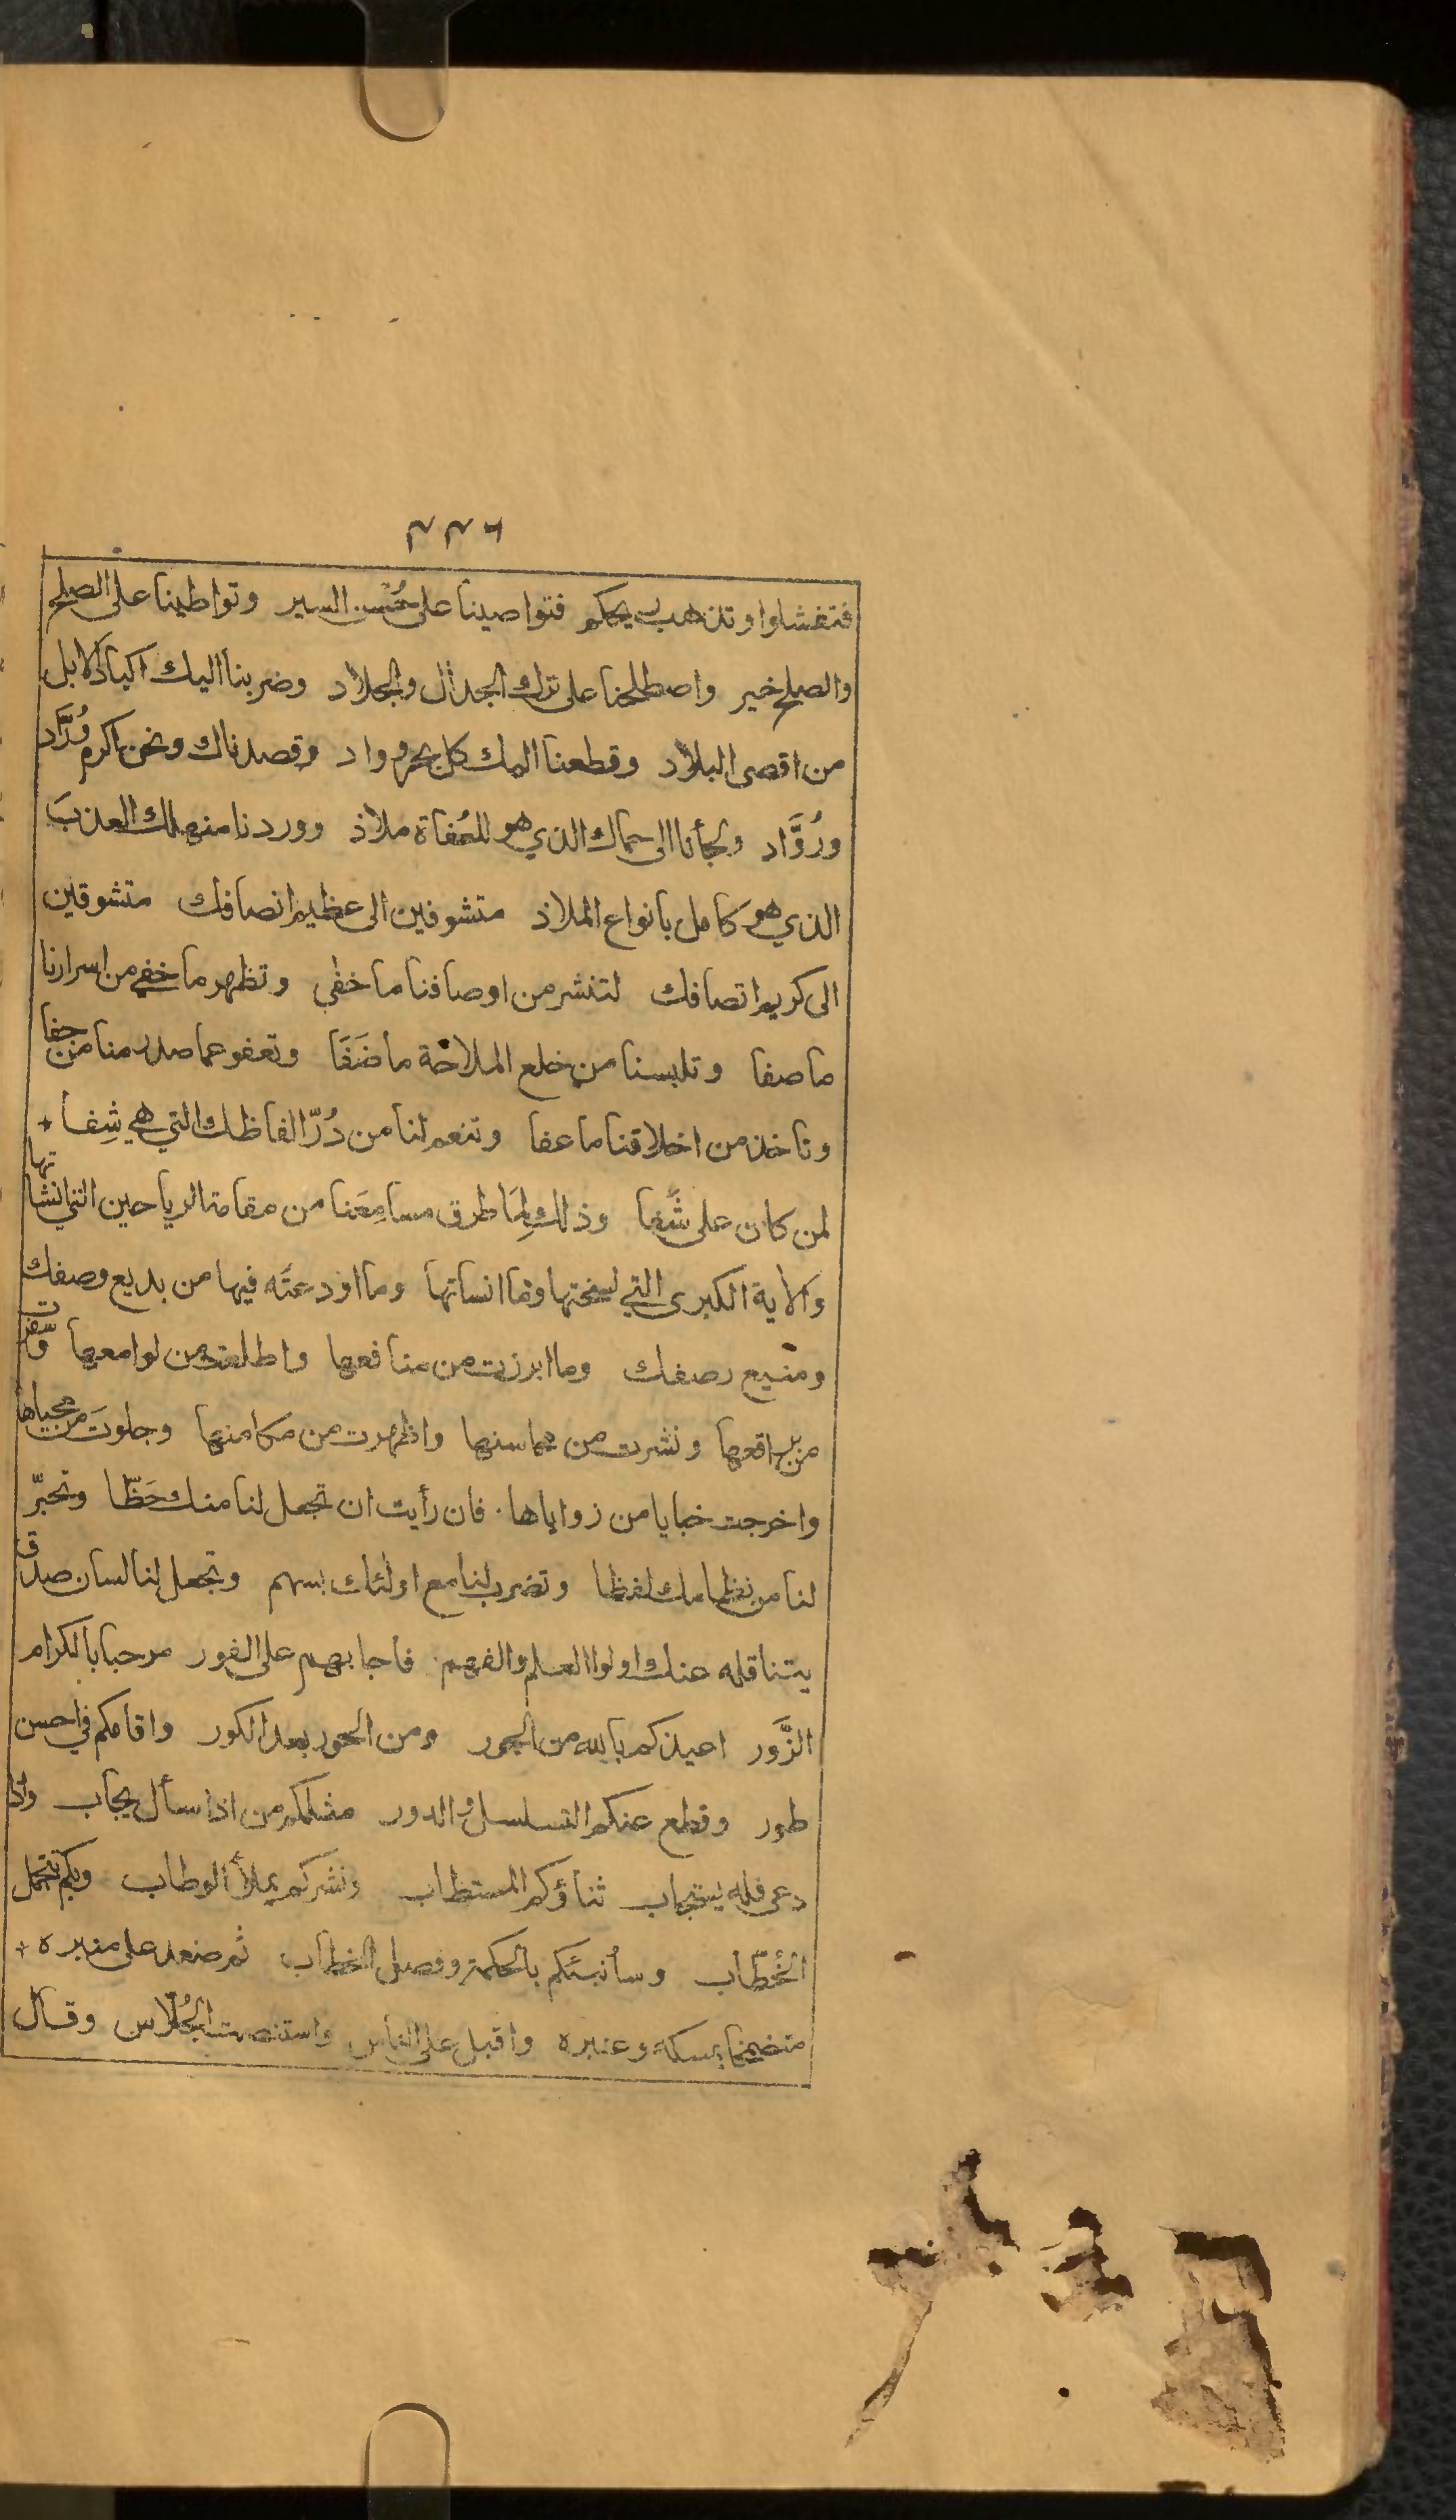 ٢٢٦
فتفشلوا وتذهب ريحكم فتواصينا على حُسن السير وتواطينا على الصلح
والصلح خير واصطلحنا على ترك الجدال والجلاد وضربنا اليك اكباد الابل
من اقصى البلاد وقطعنا اليك كل بحر وواد وقصدناك ونحن اكرم وُرَّاد
ورُوَّاد ولجأنا الى حماك الذي هو للعُفاة ملاذ ووردنا منهلك العذبَ
الذي هو كامل بانواع الملاذ متشوفين الى عظيم انصافك متشوقين
الى كريم اتصافك لتنشر من اوصافنا ما خفي وتظهر ما خفي من اسرارنا
ما صفا وتلبسنا من خلع الملاحة ما ضَفَا وتعفو عما صدر منا من جفا
وتاخذ من اخلاقنا ما عفا وتنعم لنا من دُرّ الفاظك التي هي شِفا
لمن كان على شَفا وذلك لِمَا طرق مسامِعَنا من مقامة الرياحين التي انشاتها
والاية الكبرى التي نسختها وما انساتها وما اودعتَه فيها من بديع وصفك
ومنيع رصفك وما ابرزت من منافعها واطلعت من لوامعها وسفرت
من براقعها ونشرت من محاسنها واظهرت من مكامنها وجلوتَ من محياها
واخرجت خبايا من زواياها فان رأيت ان تجعل لنا منك حَظّا وتحبّر
لنا من نظامك لفظا وتضرب لنا مع اولئك بسهم وتجعل لنا لسان صدق
يتناقله عنك اولوا العلم والفهم فاجابهم على الفور مرحبا بالكرام
الزَّور اعيذكم بالله من الجور ومن الحور بعد الكور واقامكم في احسن
طور وقطع عنكم التسلسل والدور مثلكم من اذا سأل يجاب واذا
دعى فله يستجاب ثناؤكم المستطاب ونشركم يملأ الوطاب وبكم تتجمل
الخُطّاب وسأنبئكم بالحكمة وفصل الخطاب ثم صعد على منبره
متضمخا بمسكه وعنبره واقبل على الناس واستنصت الجُلّاس وقال